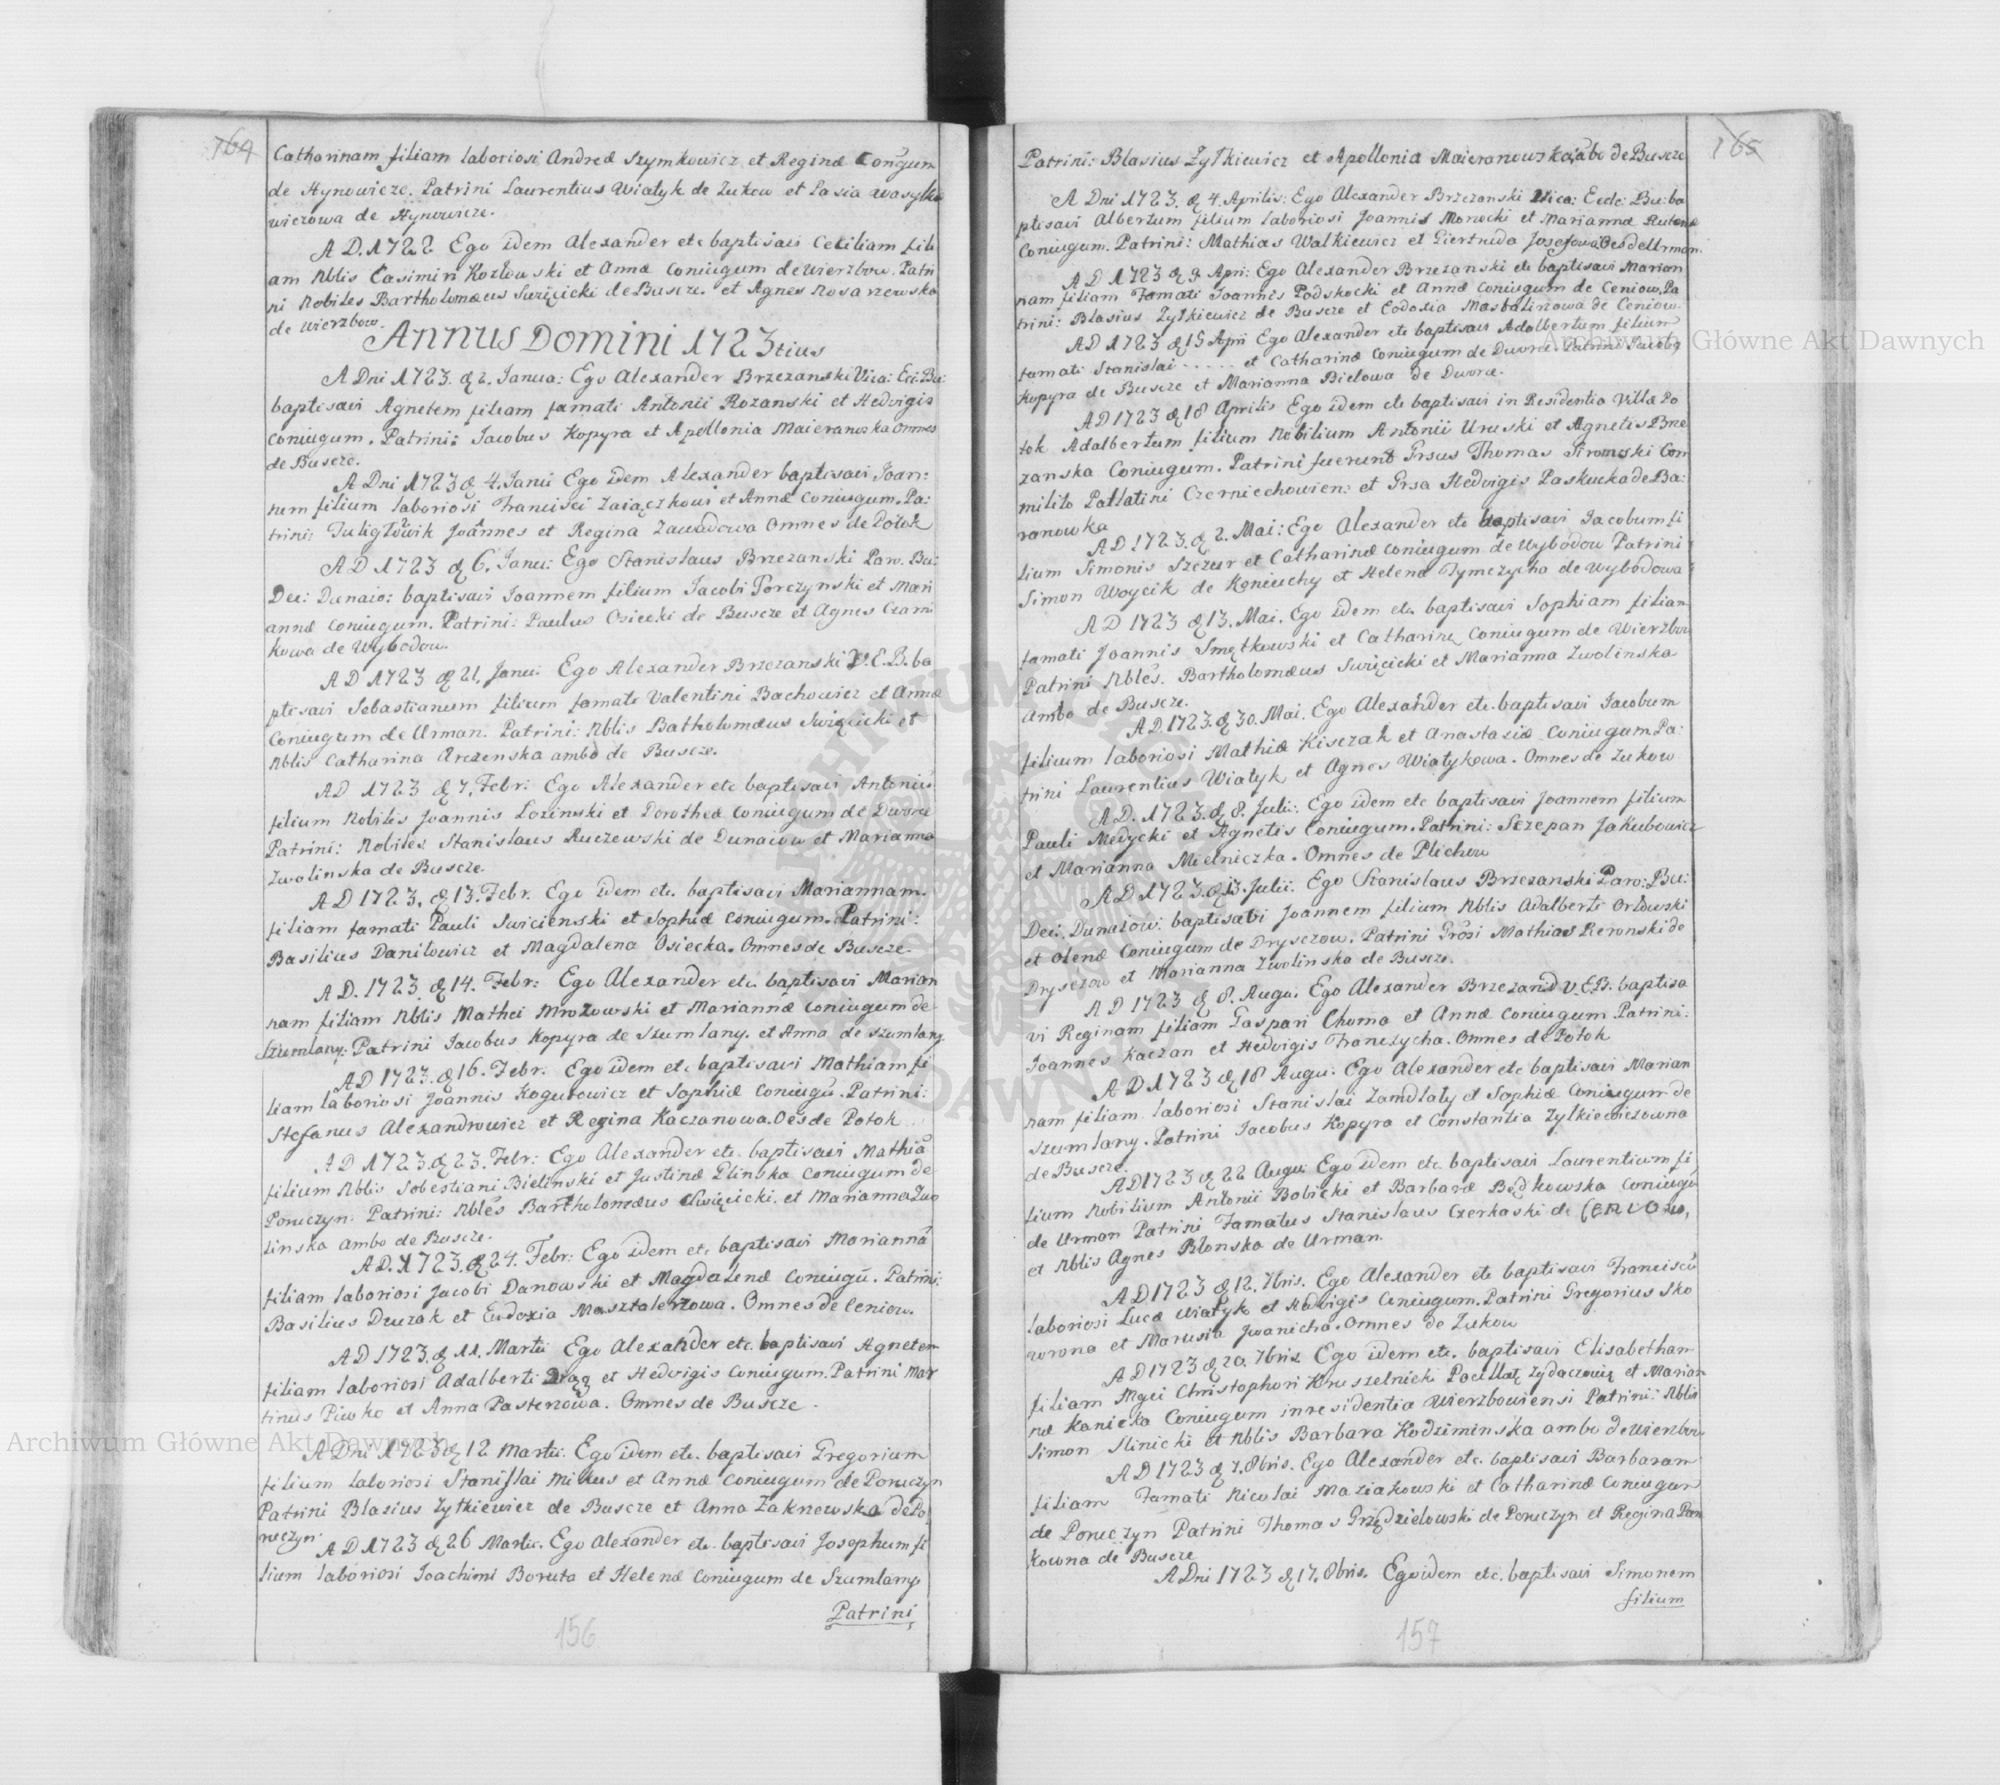 164
Catharinam filiam laboriosi Andreæ Szymkowicz et Reginæ Coniugum
de Hynowicze. Patrini Laurentius Wiatyk de Zukow et Pasia Wasylko
wiczowa de Hynowicze.
A D. 1722 Ego idem Alexander etc baptisavi Ceciliam fili
am Nblis Casimiri Kozłowski et Annæ Coniugum de Wierzbow. Patri
ni Nobiles Bartholomæus Swięcicki de Buscze. et Agnes
de Wierzbow.
Annus Domini 1723tius
A Dni 1723. d 2. Janua: Ego Alexander Brzezanski Vica: Ecc: Bu:
baptisavi Agnetem filiam famati Antonii Rozanski et Hedvigis
Coniugum. Patrini: Jacobus Kopyra et Apollonia Maieranoska Omnes
de Buscze.
A Dni 1723 d 4. Janu Ego idem Alexander baptisavi Joan:
nem filium laboriosi Francisci Zaiączkowi et Annæ Coniugum. Pa:
trini Tuligłowik Joannes et Regina Zawadowa Omnes de Potok
A D 1723 d 6. Janu: Ego Stanislaus Brzezanski Paro. Bu:
Dec: Dunaio: baptisavi Joannem filium Jacobi Porczynski et Mari
annæ Coniugum. Patrini: Paulus Osiecki de Buscze et Agnes Czarni
kowa de Wybodow.
A D 1723 d 21. Janu: Ego Alexander Brzezanski V. E. B. ba
ptisavi Sebastianum filium famati Valentini Bachowicz et Annæ
Coniugum de Urman. Patrini: Nblis Batholomæus Swięcicki et
Nblis Catharina Arczenska ambo de Buscze.
A D 1723 d 7. Febr: Ego Alexander etc baptisavi Antoniu
filium Nobilis Joannis Lozinski et Dorotheæ Coniugum de Dworce
Patrini: Nobiles Stanislaus Ruczewski de Dunaiow et Marianna
Zwolinska de Buscze.
A D 1723. d 13. Febr. Ego idem etc. baptisavi Mariannam
filiam famati Pauli Swicienski et Sophiæ Coniugum. Patrini:
Basilius Daniłowicz et Magdalena Osiecka. Omnes de Buscze.
A D. 1723 d 14. Febr: Ego Alexander etc. baptisavi Marian
nam filiam Nblis Mathei Mrozowski et Mariannæ Coniugum de
Szumlany: Patrini Jacobus Kopyra de Szumlany. et Anna de Szumlany.
A D 1723. d 16. Febr. Ego idem etc. baptisavi Mathiam fi
liam laboriosi Joannis Kogutowicz et Sophiæ Coniugu. Patrini:
Stefanus Alexandrowicz et Regina Kaczanowa. Oes de Potok
A D 1723. d 23. Febr: Ego Alexander etc. baptisavi Mathiã
filium Nblis Sobestiani Bielinski et Justinæ Plinska Coniugum de
Poruczyn. Patrini: Nbles Bartholomæus Swięcicki. et Marianna Zwo
linska ambo de Buscze.
A D. 1723. d 24. Febr: Ego idem etc baptisavi Mariannã
filiam laboriosi Jacobi Danowski et Magdalenæ Coniugū. Patrini:
Basilius Druzak et Eudoxia Masztalerzowa. Omnes de Ceniow.
A D 1723. d 11. Martii Ego Alexander etc. baptisavi Agnetem
filiam laboriosi Adalberti et Hedvigis Coniugum. Patrini Mar
tinus Piwko et Anna Pasternowa. Omnes de Buscze.
A Dni 1723 d 12 Martii. Ego idem etc. baptisavi Gregorium
filium laboriosi Stanislai Mikus et Annæ Coniugum de Poruczyn
Patrini Blasius Zytkiewicz de Buscze et Anna Zakrzewska de Po
ruczyn.
A D 1723 d 26 Martii. Ego Alexander etc. baptisavi Josephum fi
lium laboriosi Joachimi Boruta et Helenæ Coniugum de Szumlany
Patrini
156
165
Patrini: Blasius Zytkiewicz et Apollonia Maieranowska, abo de Buscze
A Dni 1723. d 4. Aprilis: Ego Alexander Brzezanski Vica: Eccle: Bu: ba
ptisavi Albertum filium laboriosi Joannis Morocki et Mariannæ
Coniugum. Patrini: Mathias Walkiewicz et Giertruda Josefowa Oes de Urman.
A D 1723 d 9. Apri: Ego Alexander Brzezanski etc baptisavi Marian
nam filiam Famati Joannis Podskocki et Annæ Coniugum de Ceniow. Pa
trini: Blasius Zytkiewicz de Buscze et Eodoxia Mastalirzowa de Ceniow.
A D 1723 d 15 Apri Ego Alexander etc baptisavi Adalbertum filium
famati Stanislai ..... et Catharinæ Coniugum de Dworce. Patrini Jacobg
Kopyra de Buscze et Marianna Bielowa de Dworce.
A D 1723 d 18 Aprilis Ego idem etc baptisavi in Residentia Villæ Po
tok Adalbertum filium Nobilium Antonii Uruski et Agnetis Brze
zanska Coniugum. Patrini fuerunt Grsus Thomas Siromski Com
milito Pallatini Czerniechowien: et Grsa Hedvigis Paskucka de Ba:
ranowka
A D 1723. d 2. Mai: Ego Alexander etc baptisavi Jacobum fi
lium Simonis Szczur et Catharinæ Coniugum de Wybodow Patrini
Simon Woycik de Koniuchy et Helena Tymczycha de Wybodowa
A D 1723 d 13. Mai. Ego idem etc. baptisavi Sophiam filian
famati Joannis Smętkowski et Catharinæ Coniugum de Wierzbow
Patrini Nbles. Bartholomæus Swięcicki et Marianna Zwolinska
Ambo de Buscze.
A D. 1723. d 30. Mai. Ego Alexander etc. baptisavi Jacobum
filium laboriosi Mathiæ Kisczak et Anastasiæ Coniugum Pa:
trini Laurentius Wiatyk et Agnes Wiatykowa. Omnes de Zukow
A D. 1723. d 8. Julii: Ego idem etc baptisavi Joannem filium
Pauli Medycki et Agnetis Coniugum. Patrini: Sczepan Jakubowicz
et Marianna Mielniczka. Omnes de Plichow
A D 1723. d 13. Julii. Ego Stanislaus Brzezanski Paro: Bu:
Dec: Dunaiow: baptisavi Joannem filium Nblis Adalberti Orłowski
et Olenæ Coniugum de Dryszow. Patrini Grosi Mathias Reronski de
Dryszow et Marianna Zwolinska de Buscze.
A D 1723 d 8. Augu. Ego Alexander Brzezansd V. E. B. baptisa
vi Reginam filiam Gaspari Choma et Annæ Coniugum Patrini:
Joannes Kaczan et Hedvigis Franczycha. Omnes de Potok
A D 1723 d 18 Augu. Ego Alexander etc baptisavi Marian
nam filiam laboriosi Stanislai Zamdlały et Sophiæ Coniugum de
Szumlany. Patrini Jacobus Kopyra et Constantia Zylkiewiczowna
de Buscze.
A D 1723 d 22 Augu: Ego idem etc. baptisavi Laurentium fi
lium Nobilium Antonii Bobicki et Barbaræ Będkowska Coniugū
de Urman Patrini Famatus Stanislaus Czerkaski de Ceniow,
et Nblis Agnes Blonska de Urman.
A D 1723 d 12. 7bris. Ego Alexander etc baptisavi Franciscū
laboriosi Lucæ Wiatyk et Hedvigis Coniugum. Patrini Gregorius Sko
wrona et Marusia Jwanicha. Omnes de Zukow
A D 1723 d 20. 7bris. Ego idem etc. baptisavi Elisabetham
filiam Mgci Christophori Kruszelnicki Pocillatę Zydaczowię et Marian
næ Kanicka Coniugum in residentia Wierzbowiensi Patrini: Nblis
Simon Slinicki et Nblis Barbara Kodziminska ambo de Wierzbow
A D 1723 d 7. 8bris. Ego Alexander etc. baptisavi Barbaram
filiam Famati Nicolai Maziakowski et Catharinæ Coniugum
de Poruczyn Patrini Thomas Grzędzielowski de Poruczyn et Regina Pan
kowna de Buscze
A Dni 1723 d 17. 8bris. Ego idem etc. baptisavi Simonem
filium
157
Archiwum Główne Akt Dawnych
Archiwum Główne Akt Dawnych